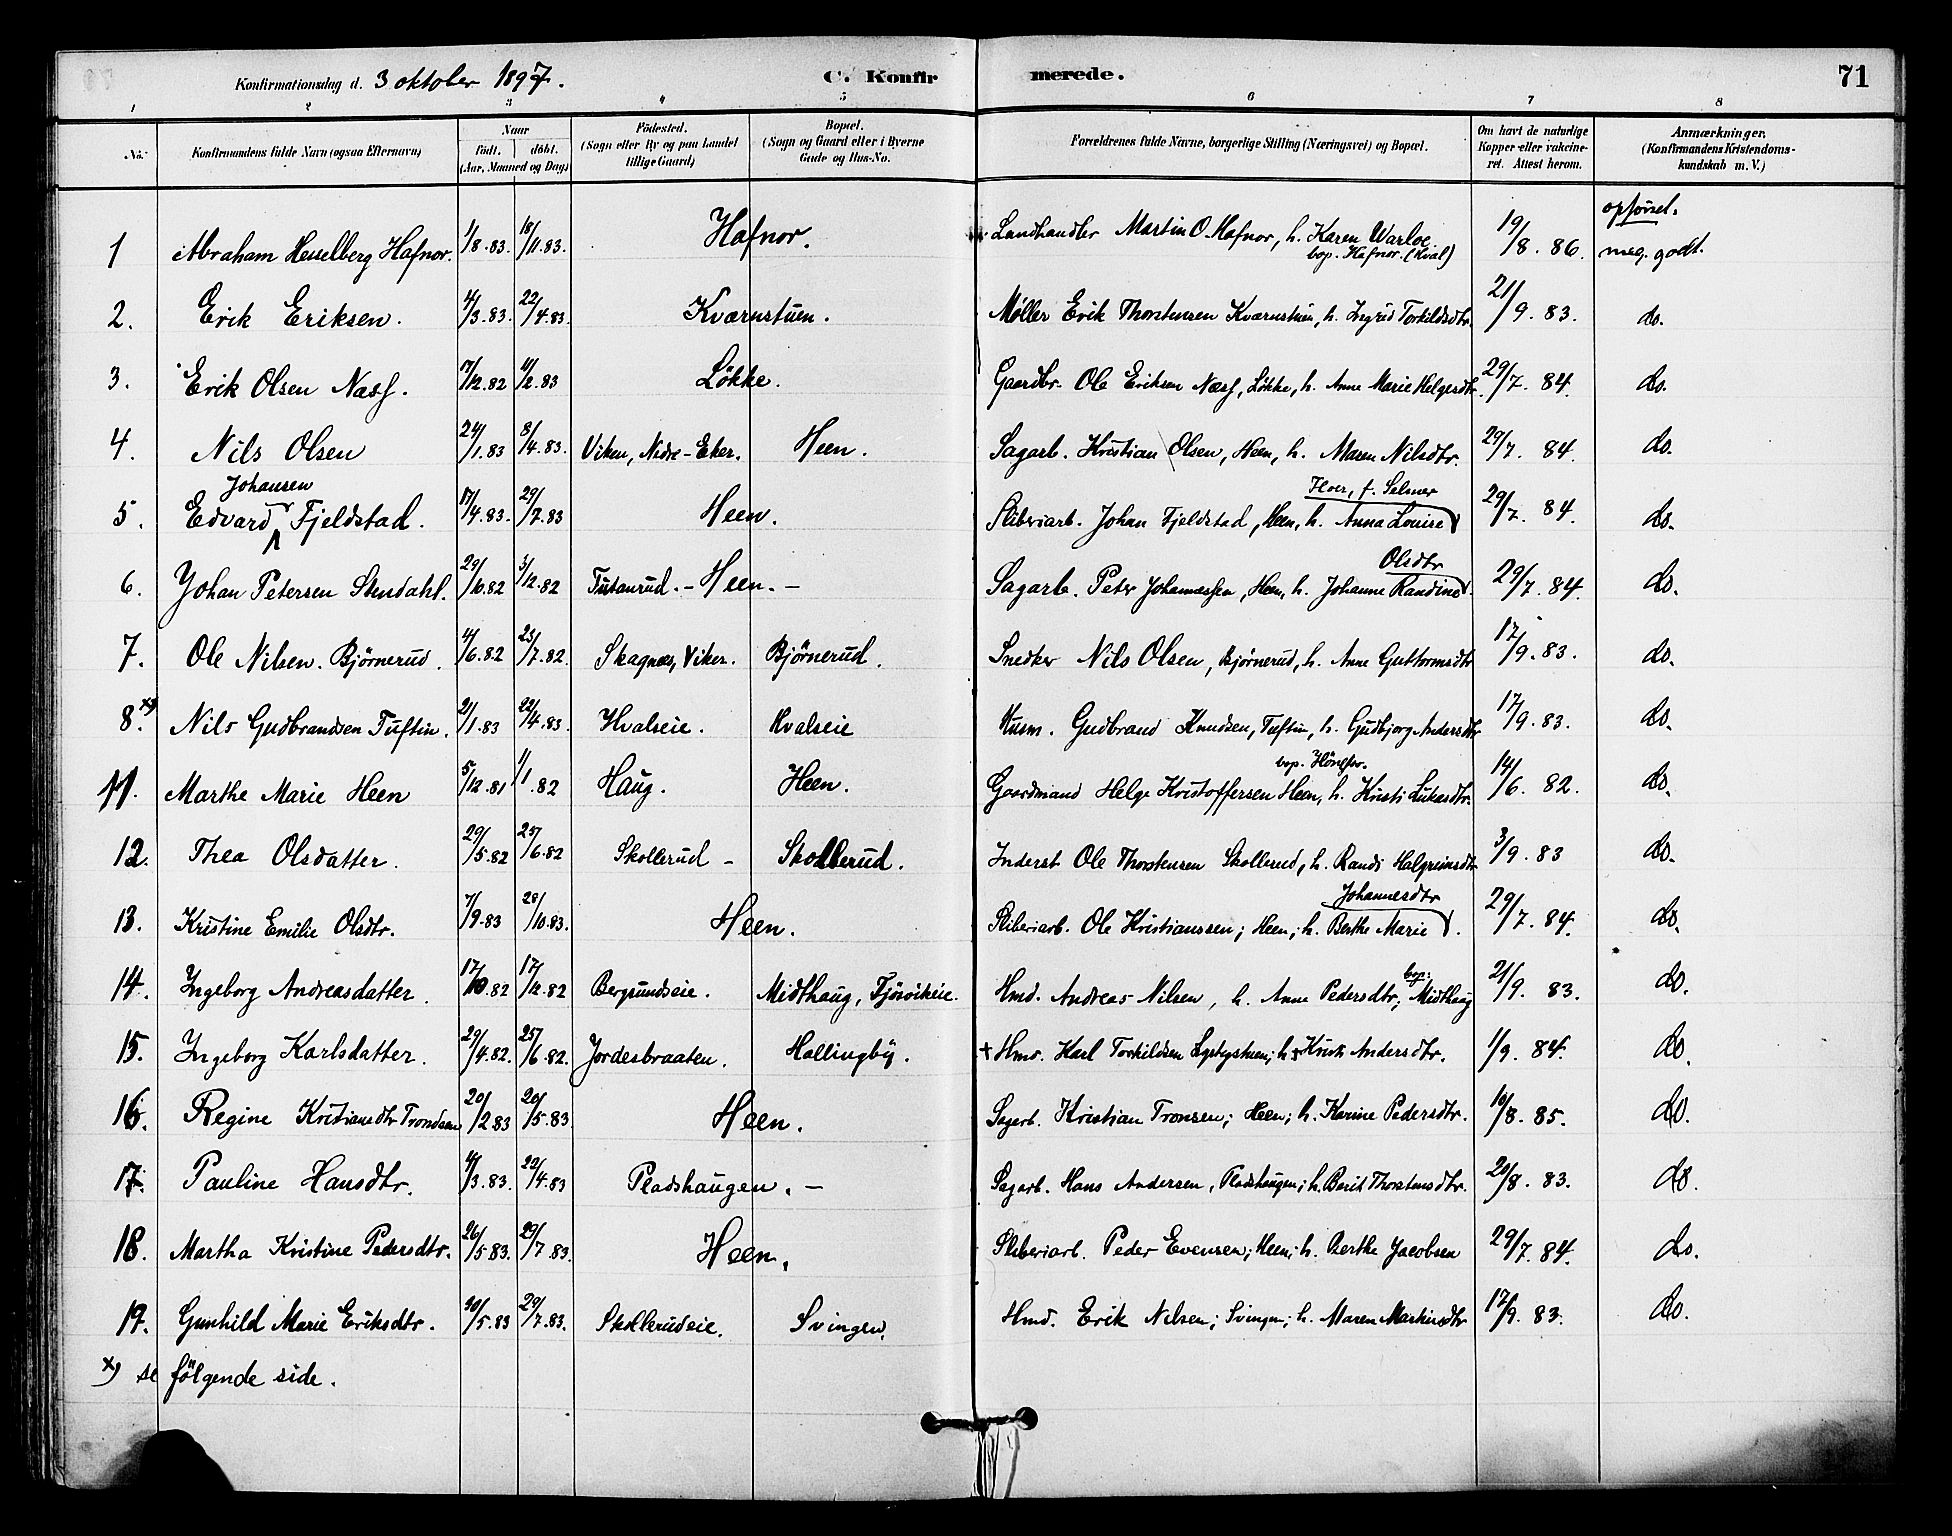 Konfirmationsdag d. 3 oktober 1897. C. Konfirmerede. 71
1 2 3 4 5 6 7 8
No. Konfirmandens fulde Navn (ogsaa Efternavn) Naar født. døbt. (Aar, Maaned og Dag) Fødested. (Sogn eller By og paa Landet tillige Gaard) Bopæl. (Sogn og Gaard eller i Byerne Gade og Hus-No. Forældrenes fulde Navne, borgerlige Stilling (Næringsvei) og Bopæl. Om havt de naturlige Kopper eller vakcineret. Attest herom. Anmærkninger. (Konfirmandens Kristendomskundskab m. V.)
opførsel.
1 Abraham Hesselberg Hafnor. 1/8.83. 18/11.83. Hafnor. Landhandler Martin O. Hafnor, h. Karen Warloe. bop. Hafnor. (Kval) 19/8. 86. meg. godt.
2. Erik Eriksen. 4/3.83. 22/4.83. Kværnstuen. Møller Erik Thorstensen Kværnstuen, h. Ingrid Torkildsdtr. 21/9. 83. do.
3. Erik Olsen Næss. 17/12.82 11/2.83 Løkke. Gaardbr. Ole Eriksen Næss, Løkke, h. Anne Marie Helgesdtr. 29/7. 84. do.
4. Nils Olsen 24/1.83 8/4.83. Viken, Nedre-Eker. Heen. Sagarb. Kristian Olsen, Heen, h. Maren Nilsdtr. 29/7. 84. do.
5. Edvard Johansen Fjeldstad. 17/4.83. 29/7.83 Heen. Sliberiarb. Johan Fjeldstad, Heen, h. Anna Louise f. Selmer 29/7. 84. do.
6. Johan Petersen Stendahl. 29/10.82 3/12.82 Tutanrud. - Heen. - Sagarb. Peter Johannessen, Heen, h. Johanne Randine Olsdtr 29/7. 84. do.
7. Ole Nilsen. Bjørnerud. 4/6.82 23/7.82. Skagnæs, Viker. Bjørnerud. Snedker Nils Olsen, Bjørnerud, h. Anne Guttormsdtr 17/9. 83. do.
8. x) Nils Gudbrandsen Tuftin. 21/1.83 22/4.83. Hvalseie. Hvalseie Husm. Gudbrand Knudsen, Tuftin, h. Gudbjorg Andersdtr 17/9. 83. do.
11. Marthe Marie Heen 5/12.81 1/1.82 Haug. Heen. Gaardmand Helge Kristoffersen Heen, h. Kristi Lukasdtr. bop. Hönefos. 14/6. 82. do.
12. Thea Olsdatter. 29/5.82 25/6.82 Skollerud - Skollerud. Inderst Ole Thorstensen Skollerud, h. Randi Halgrimsdtr 3/9. 83 do.
13. Kristine Emilie Olsdtr. 7/9.83 28/10.83. Heen. Sliberiarb. Ole Kristianssen; Heen; h. Berthe Marie Johannesdtr. 29/7. 84. do.
14. Ingeborg Andreasdatter. 17/10.82 17/12.82 Bergsundseie. Midthaug, Fjösvikeie. Hmd. Andreas Nilsen, h. Anne Pedersdtr; bop: Midthaug 21/9. 83. do.
15. Ingeborg Karlsdatter. 29/4.82. 25/6.82. Jordesbraaten. Hallingby. + Hmd. Karl Torkildsen Lystystuen; h + Kristi Andersdtr. 1/9. 84. do.
16. Regine Kristiansdtr Trondsen 20/2.83 20/5.83 Heen. Sagarb. Kristian Tronsen; Heen; h. Karine Pedersdtr. 10/8. 85. do.
17. Pauline Hansdtr. 4/3.83. 22/4.83 Pladshaugen. - Sagarb. Hans Andersen, Pladshaugen; h. Berit Thorstensdtr. 20/8. 83. do.
18. Martha Kristine Pedersdtr. 26/5.83. 29/7.83. Heen. Sliberiarb. Peder Evensen; Heen; h. Berthe Jacobsen 29/7. 84. do.
19. Gunhild Marie Eriksdtr. 30/5.83 29/7.83. Skollerudeie. Svingen. Hmd. Erik Nilsen; Svingen; h. Maren Martinsdtr 17/9. 83. do.
x) se følgende side.